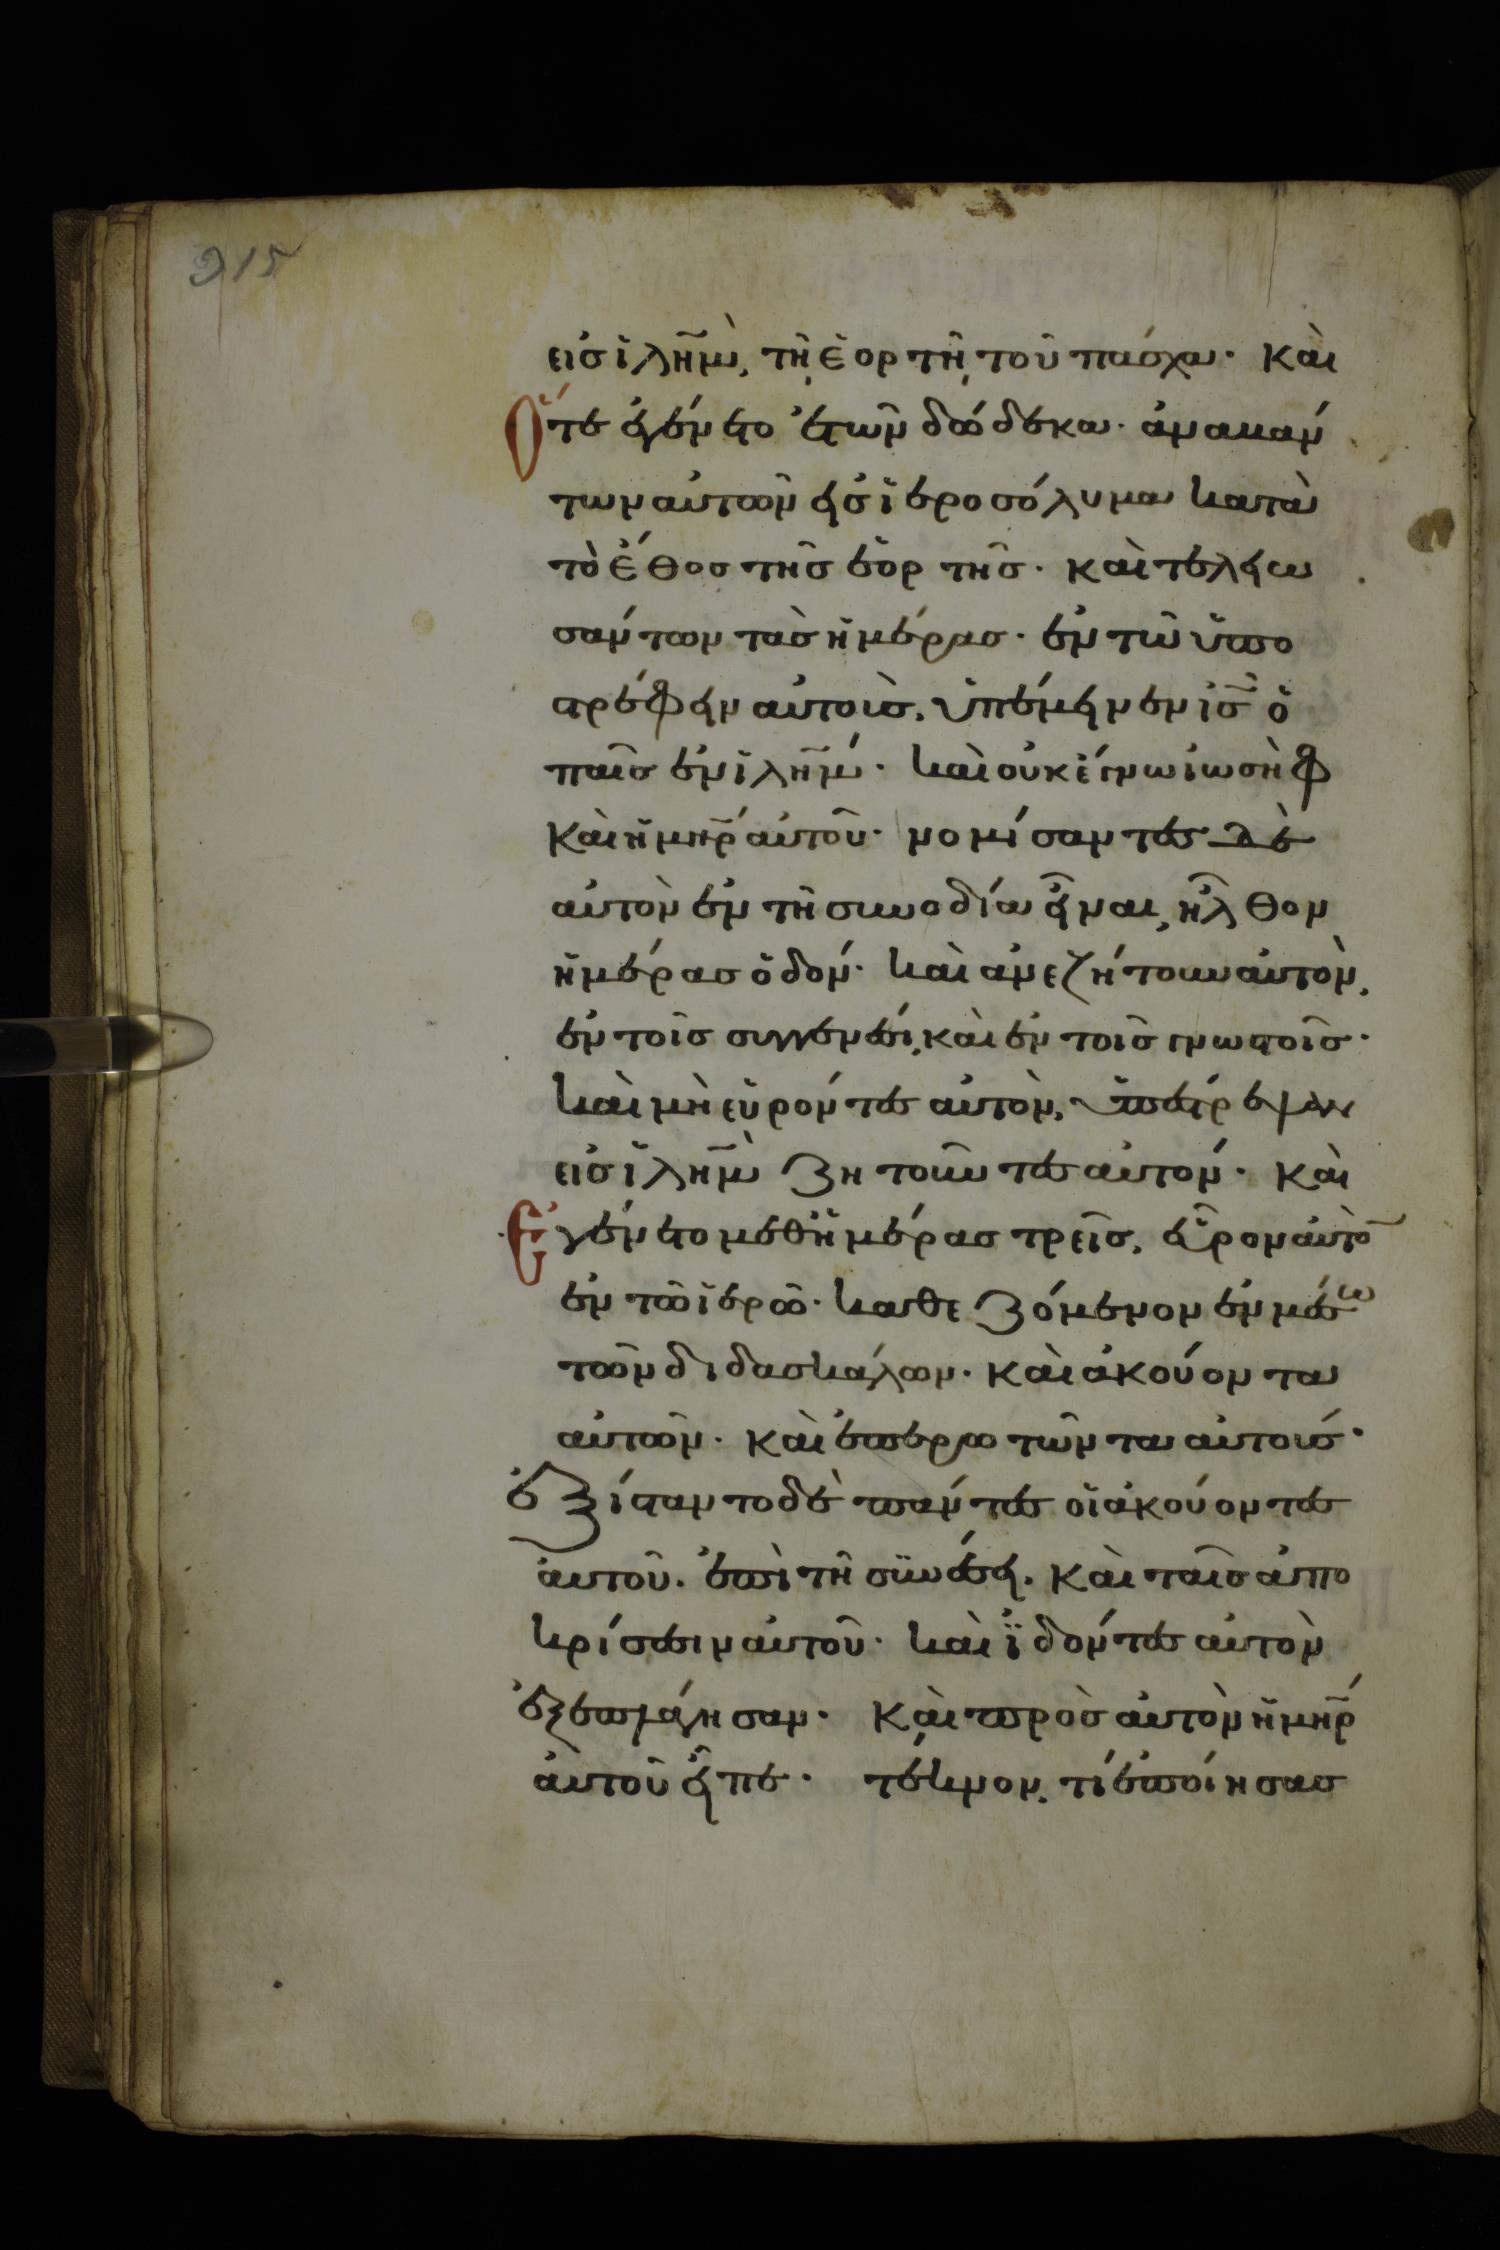 215
εἰσ ἰλῆμ, τῆ ἑορτῆ, τοῦ πάσχα· καὶ
ὅτε ἐγένετο ἐτῶν δώδεκα· ἀναβάν
των αὐτῶν εἰσ ἱεροσόλυμα κατὰ
τὸ ἔθοσ τῆσ ἑορτῆσ· καὶ τελειω
σάντων τὰσ ἡμέρασ· ἐν τῶ ὑπο
στρέφειν αὐτοὺσ, ὑπέμεινεν ἰσ̅ ὁ
παῖσ ἐν ἰλῆμ· καὶ οὐκ ἔγνω ἰωσὴφ
καὶ ἡ μηρ̅ αὐτοῦ· νομίσαντεσ δὲ
αὐτὸν ἐν τῆ συνοδία εἶναι, ἦλθον
ἡμέρασ ὁδόν· καὶ ἀνεζήτουν αὐτὸν,
ἐν τοῖσ συγγενέσι, καὶ ἐν τοῖσ γνωστοῖσ·
καὶ μὴ εὑρόντεσ αὐτὸν, ὑπέστρεψαν
εἰσ ἰλῆμ ζητοῦντεσ αὐτόν· καὶ
ἐγένετο μεθ ἡμέρασ τρεῖσ, εὗρον αὐτὸ̅
ἐν τῶ ἱερῶ· καθεζόμενον ἐν μέσω
τῶν διδασκάλων· καὶ ἀκούοντα
αὐτῶν· καὶ ἐπερωτῶντα αὐτούσ·
ἐξίσταντο δὲ πάντεσ οἱ ἀκούοντεσ
αὐτοῦ· ἐπὶ τῆ συνέσει· καὶ ταῖσ ἀπο
κρίσεσιν αὐτοῦ· καὶ ἰδόντεσ αὐτὸν
ἐξεπλάγησαν· καὶ πρὸσ αὐτὸν ἡ μηρ̅
αὐτοῦ εἶπε· τέκνον, τί ἐποίησασ